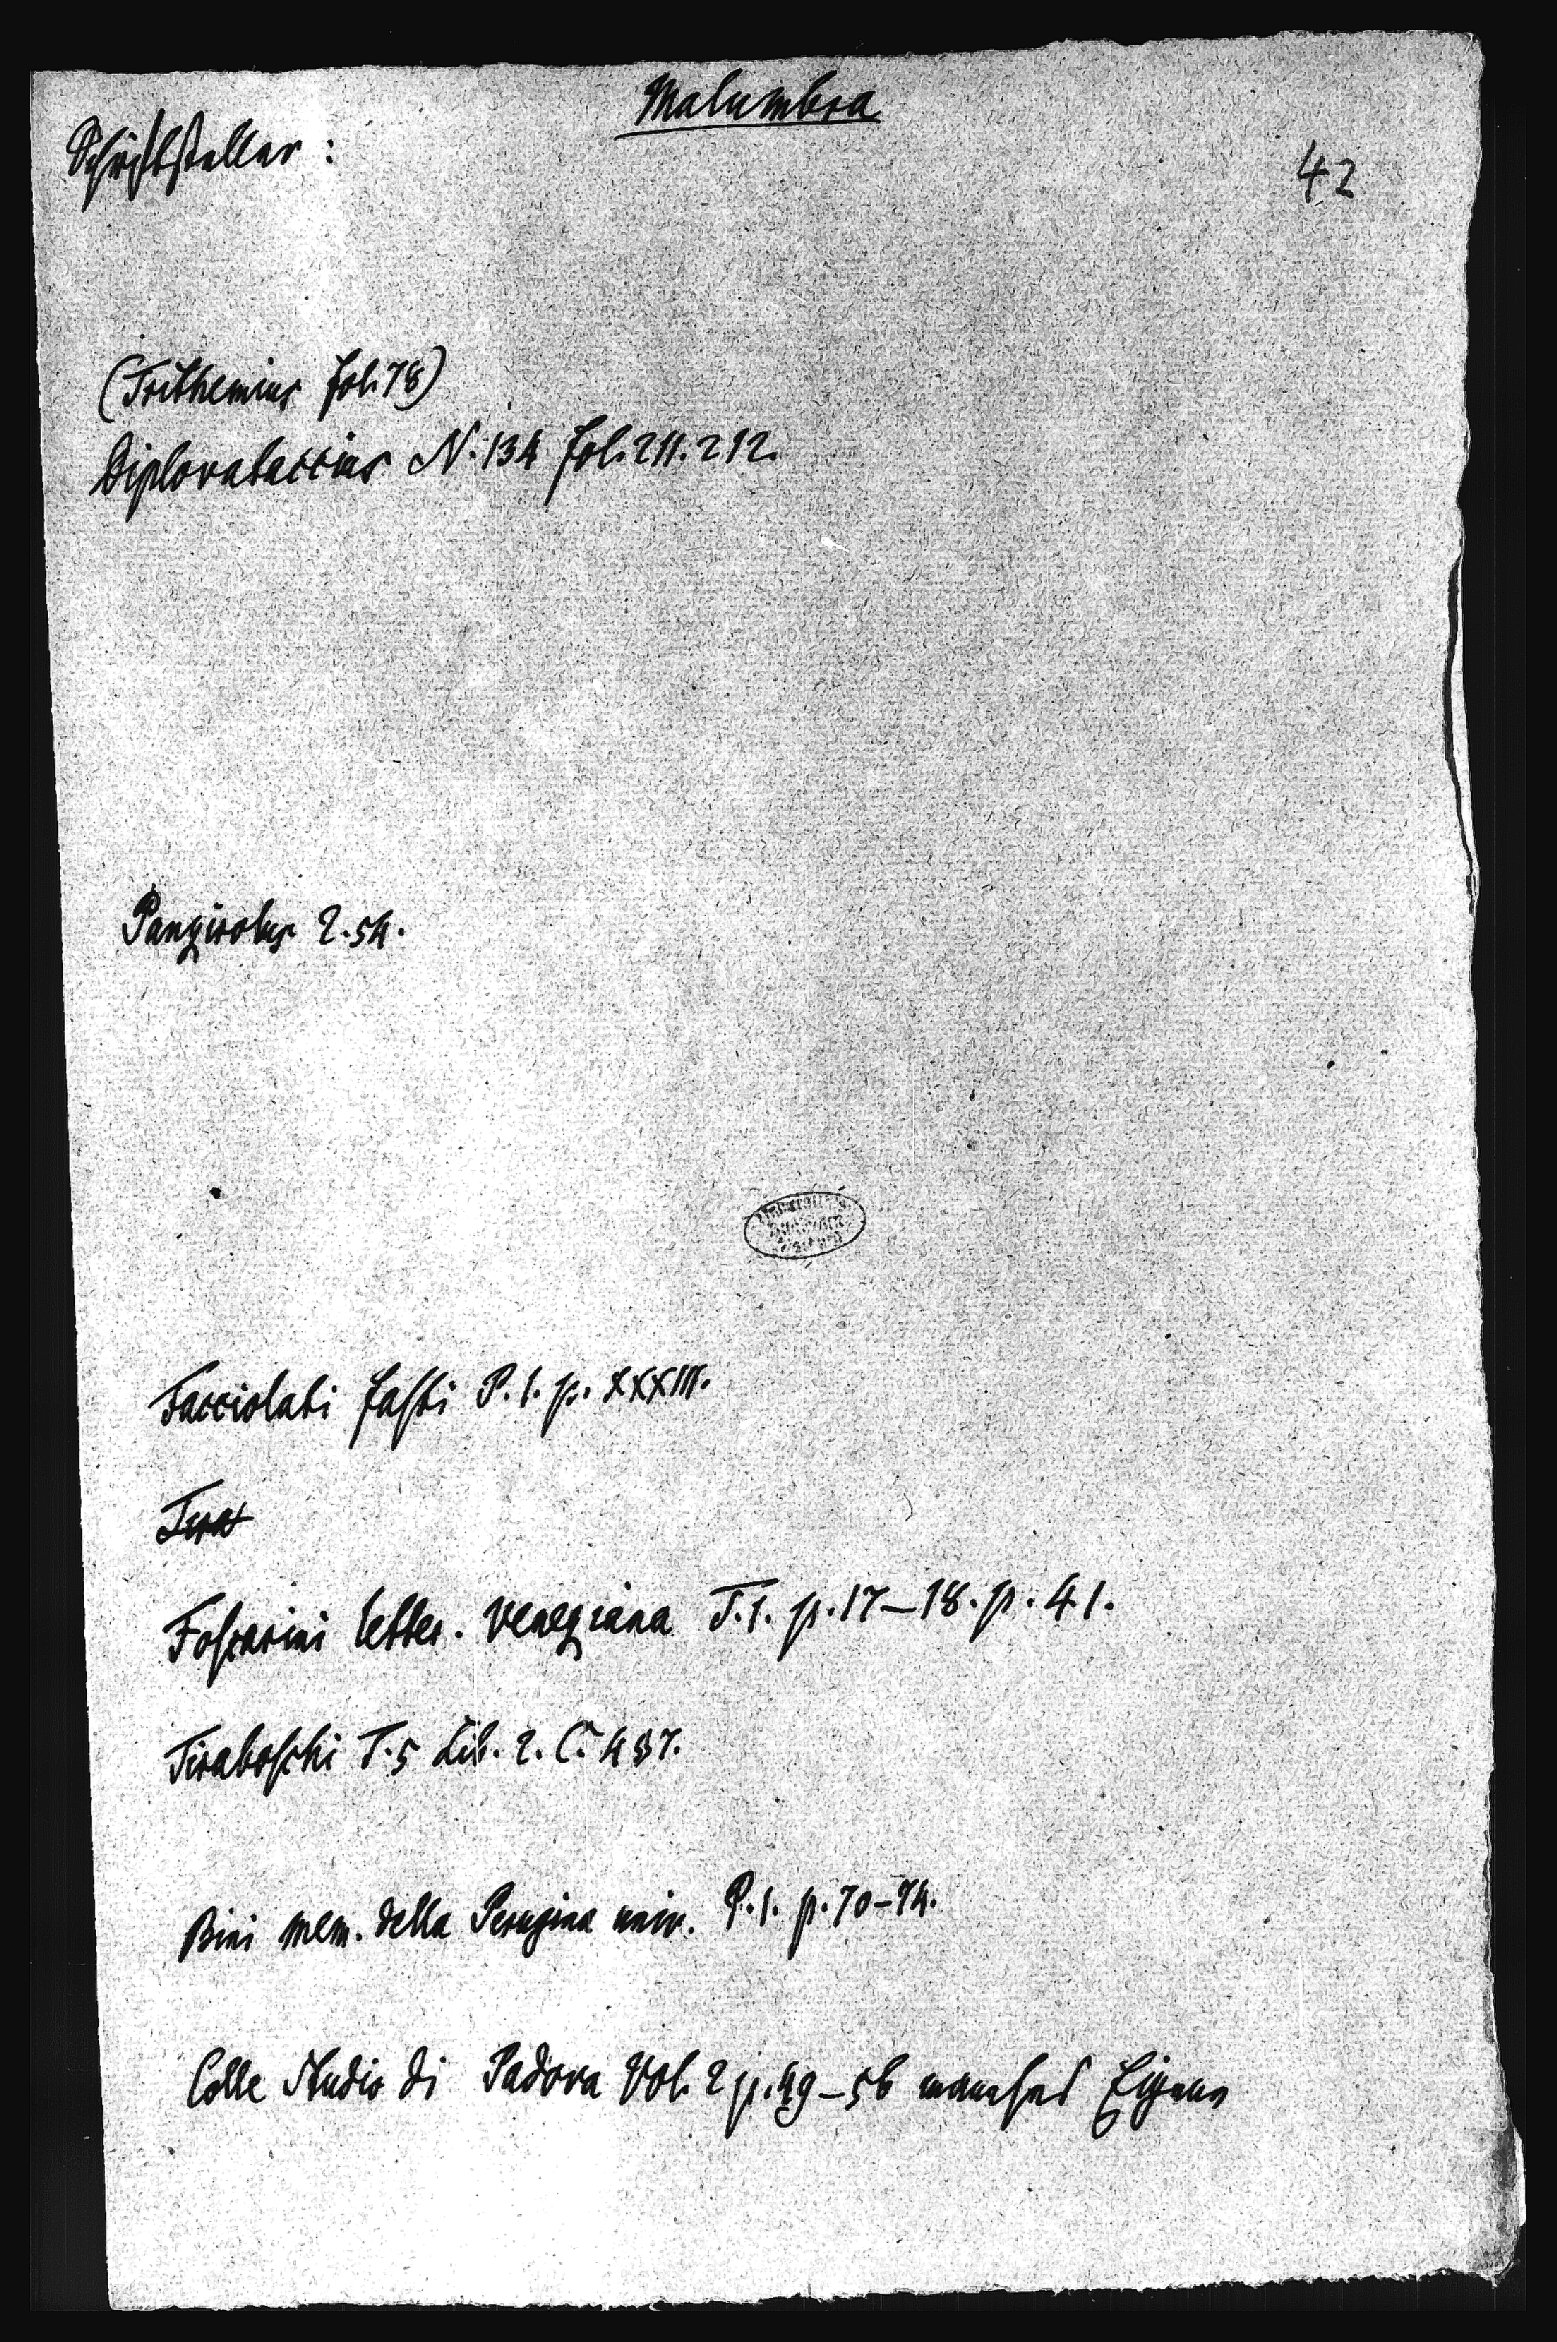 Malumbra
Schriftsteller:
42
(Trithemius fol. 78)
Diplovataccius N. 134 fol. 211. 212.
Panzirolus 2. 54.
Facciolati fasti P. 1. p. XXXIII.
Foscarini letter. veneziana T. 1. p. 17–18. p. 41.
Tiraboschi T. 5 Lib. 2. C. 4 §7.
Bini mem. della Perugina univ. P. 1. p. 70–74.
Colle Studio di Padova Vol. 2 p. 49–56 manches Eigene